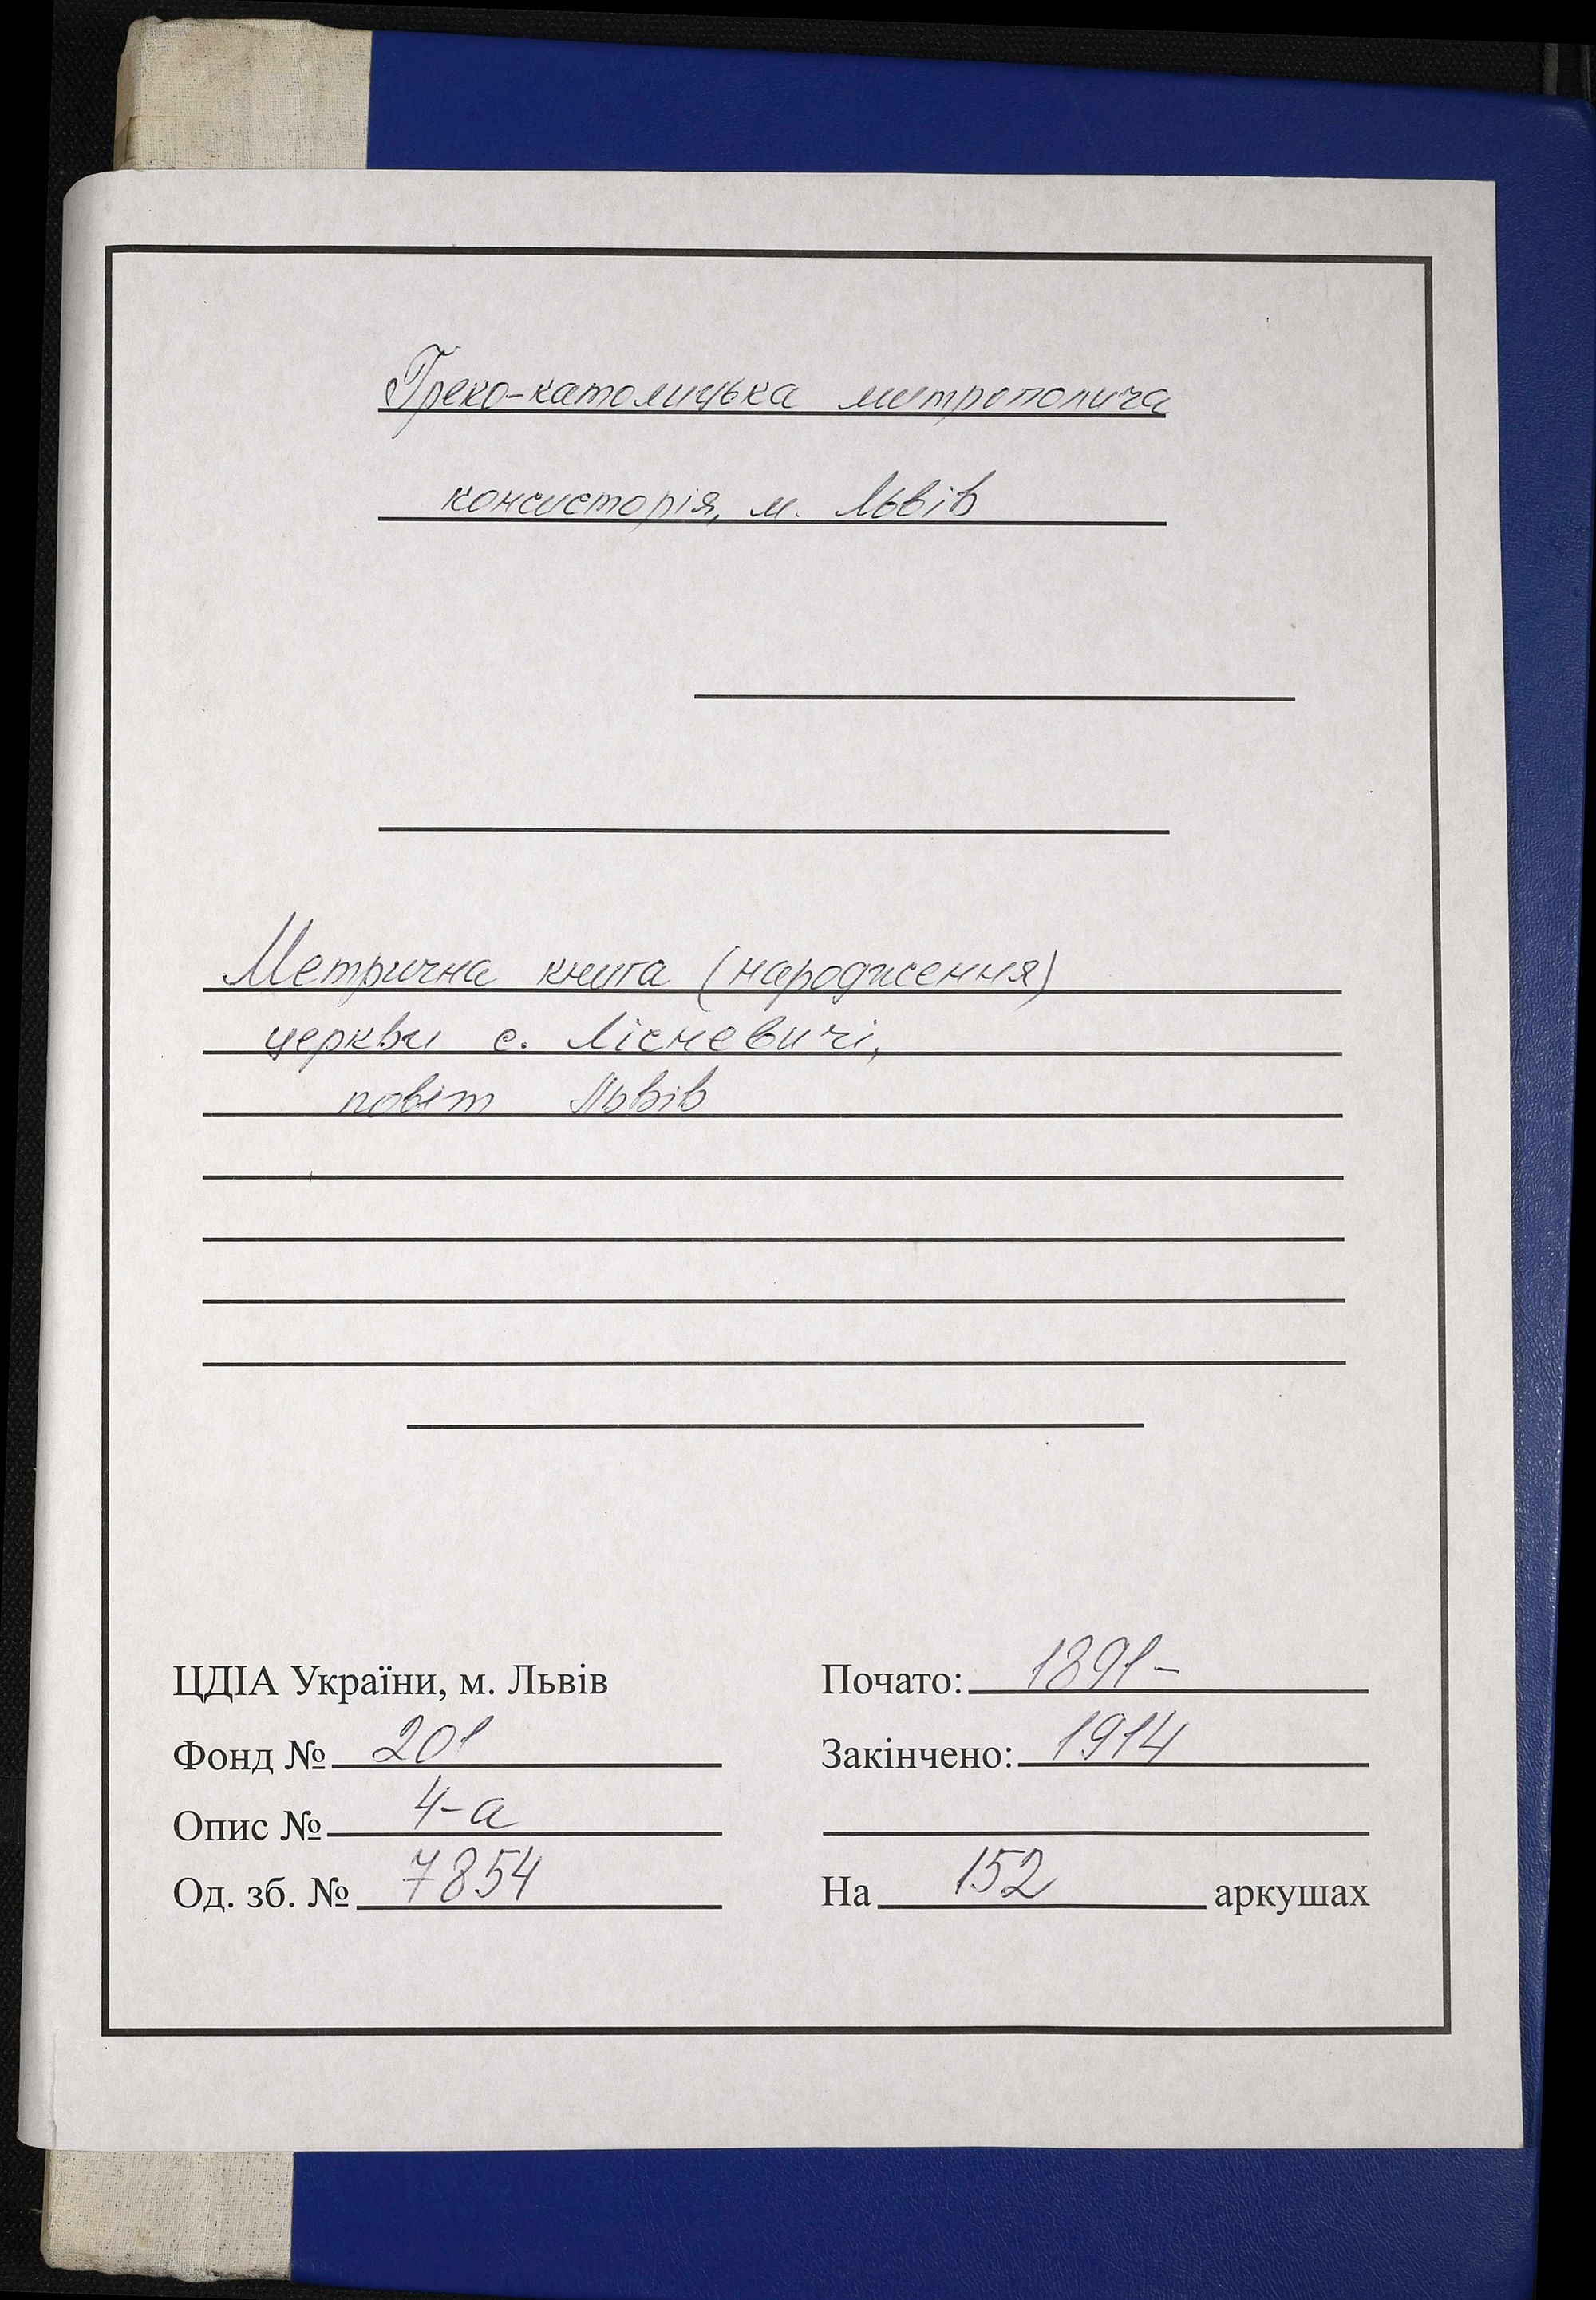 Греко-католицька митрополича
консисторія, м. Львів
Метрична книга (народження)
церкви с. Лісневичі,
повіт Львів
ЦДІА України, м. Львів
Фонд № 201
Опис № 4-а
Од. зб. № 7854
Почато: 1891-
Закінчено: 1914
На 152 аркушах